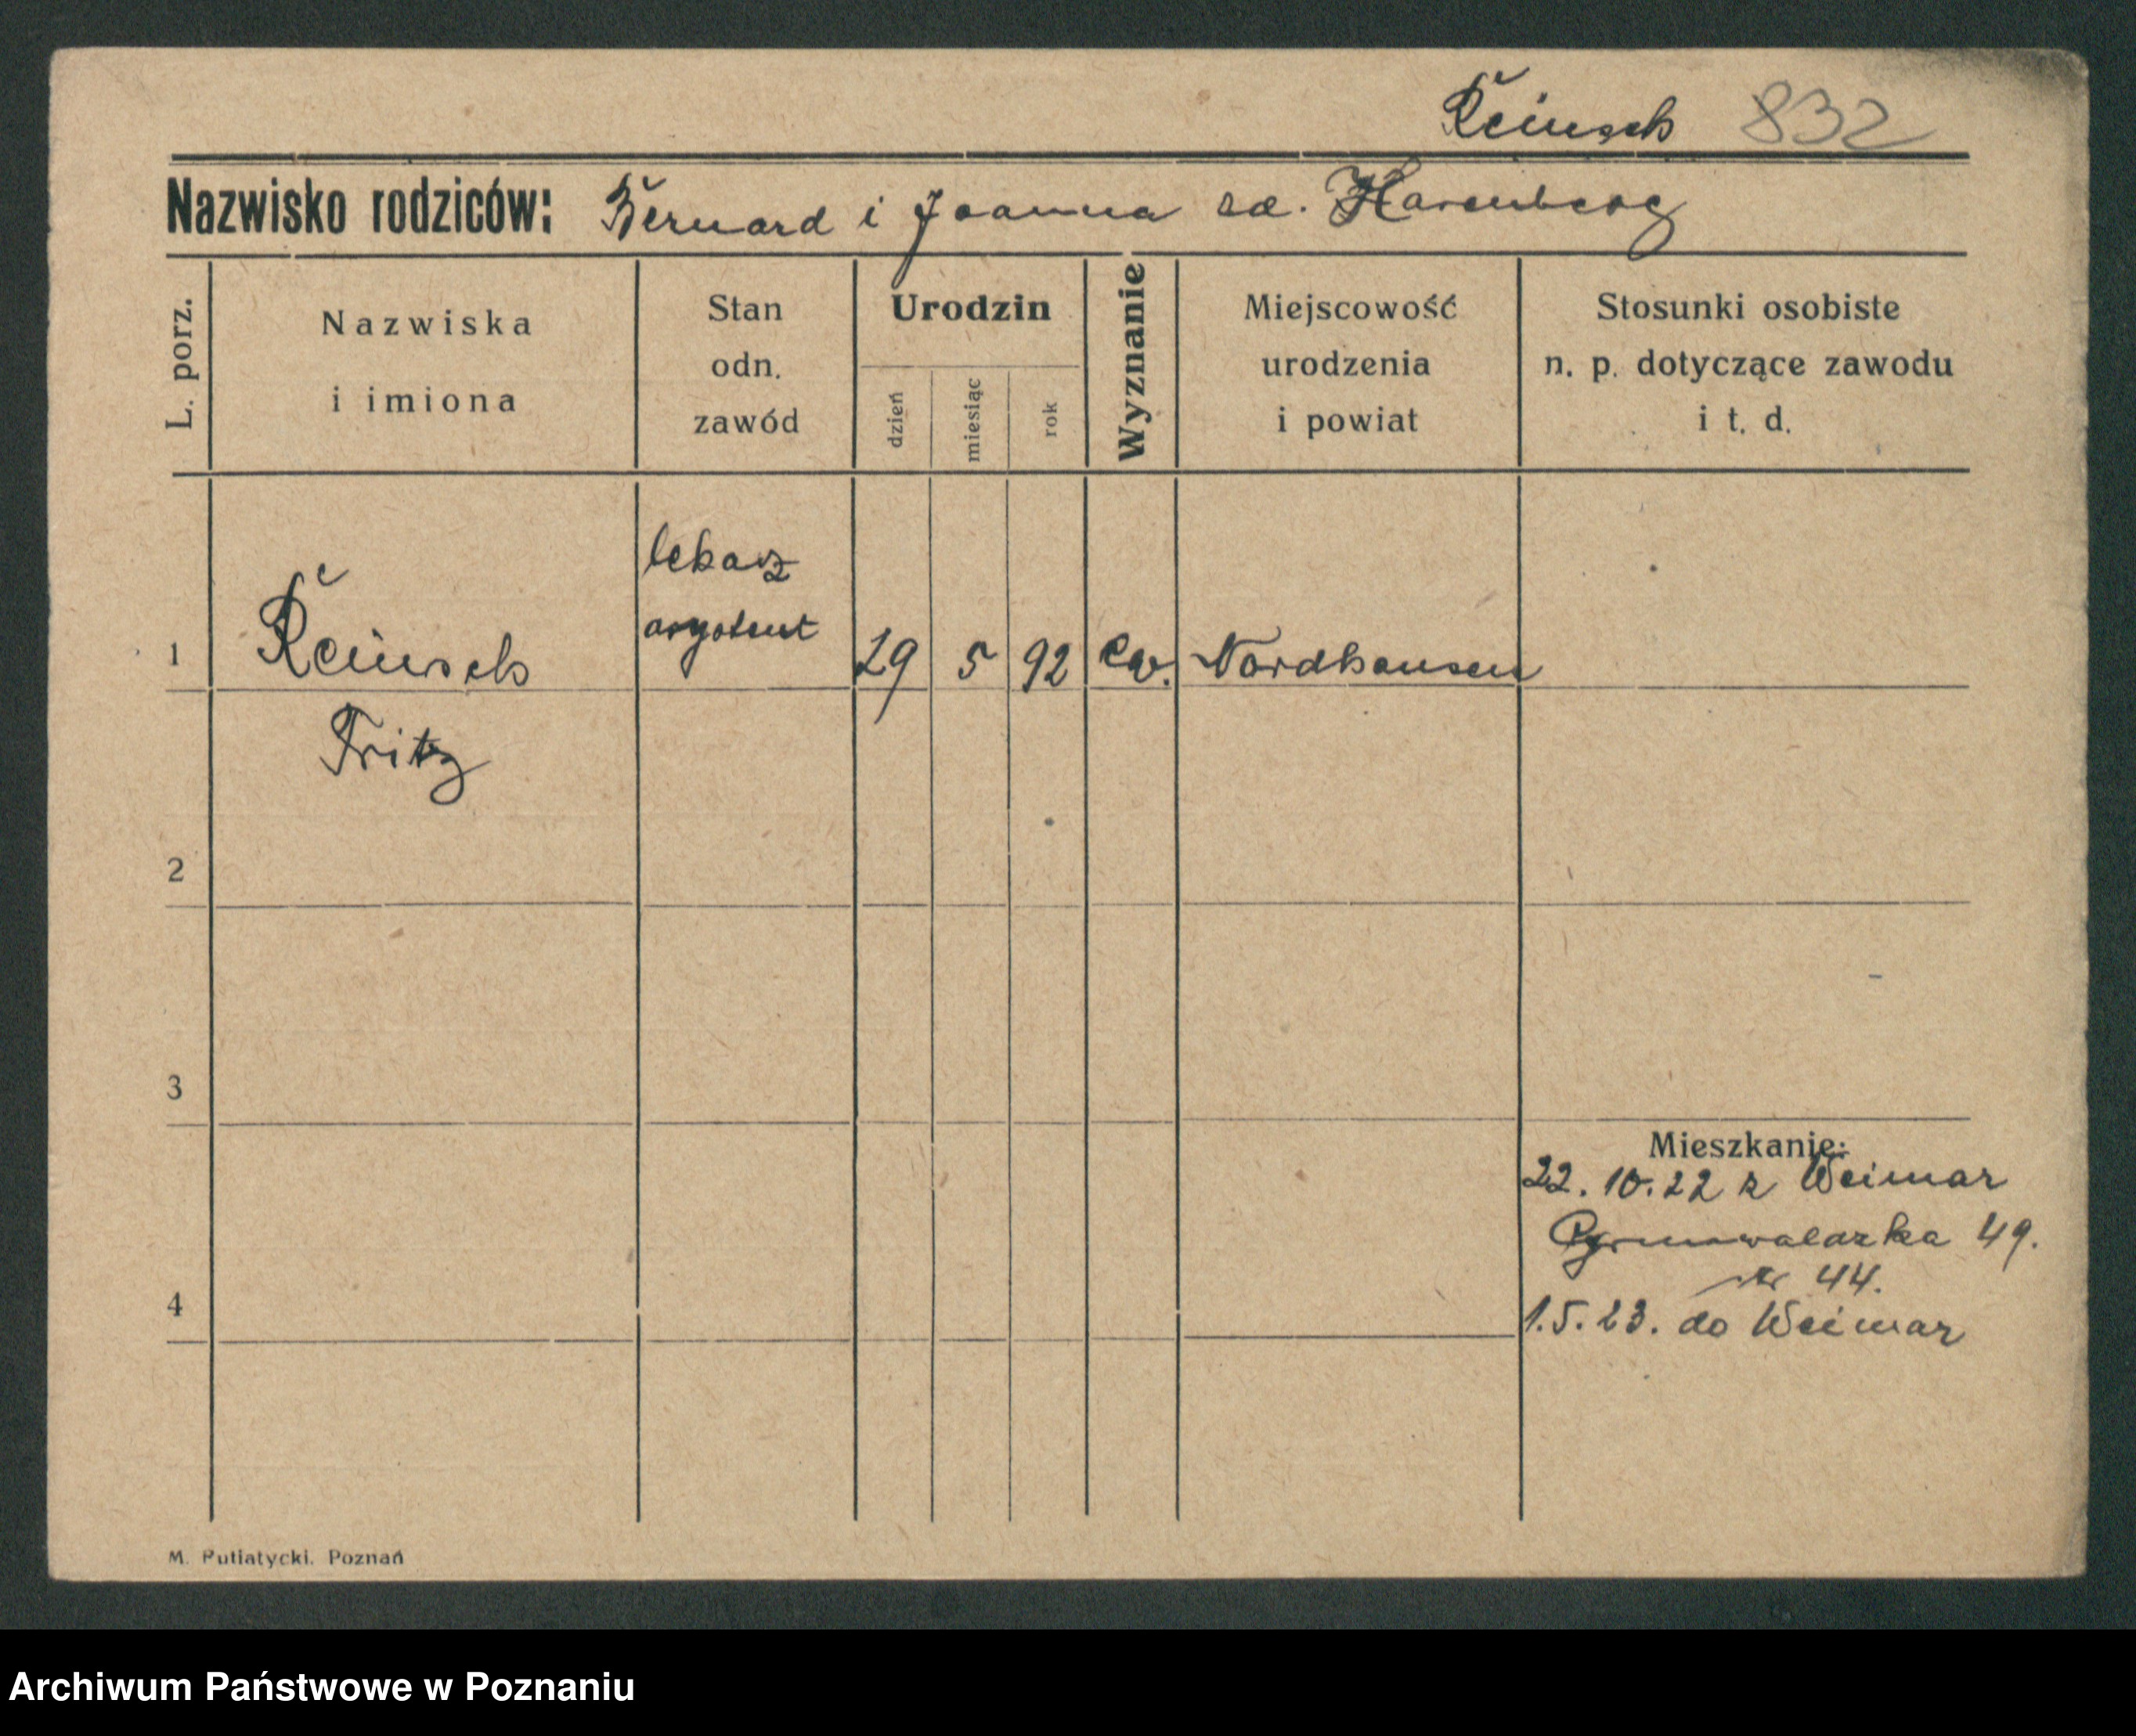 Reinsch 832
Nazwisko rodziców: Bernard i Joanna zd. Harenberg
L. porz.
Nazwiska
i imiona
Stan
odn.
zawód
Urodzin
dzień
miesiąc
rok
Wyznanie
Miejscowość
urodzenia
i powiat
Stosunki osobiste
n. p. dotyczące zawodu
i t. d.
lekarz
asystent
1 Reinsch 29 5 92 ew. Nordhausen
Fritz
2
3
Mieszkanie:
22. 10. 22 z Weimar
49.
44.
4
1. 5. 23. do Weimar
M. Putiatycki. Poznań
Archiwum Państwowe w Poznaniu